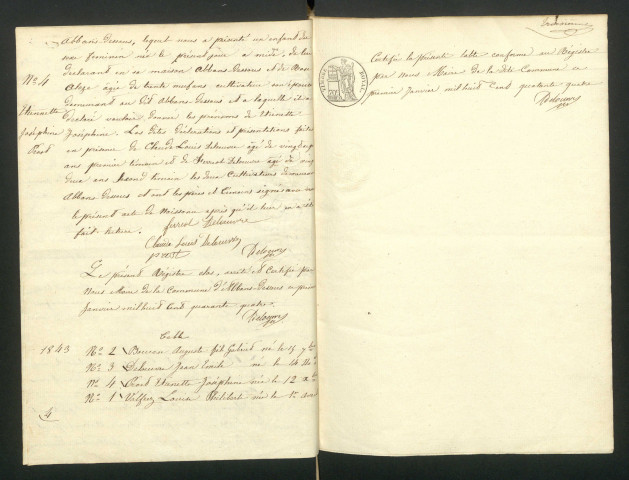 Abbans-Dessus, lequel nous a présenté un enfant du
sexe féminin née le présent jour à midi, de lui
déclarant en sa maison Abbans-Dessus et de
âgée de trente neuf ans cultivatrice son épouse
demeurant au dit Abbans-Dessus et à laquelle il a
déclaré vouloir donner les prénoms de Etienette
Joséphine. Les dites déclaration et présentation faites
en présence de Claude Louis Delouvre âgé de vingt
ans premier témoin et de Ferreol Delouvre âgé de
deux ans second témoin les deux cultivateurs demeurant
Abbans-Dessus et ont les pères et témoins signés avec nous
le présent acte de naissance après qu'il leur en a été
fait lecture.
No 4
Etienette
Joséphine
ferreol Delouvre
Claude Louis Delouvre
Le présent Registre clos, arrêté et certifié par
Nous Maire de la Commune d'Abbans-Dessus ce premier
Janvier mil huit cent quarante quatre.
Table
1843 No 2 Auguste fils né le 15
No 3 Delouvre Jean né le 14
No 4 Etienette Joséphine née le 12
No 1 Louise Philiberte née le 1er avril
4
Certifié la présente table conforme au Registre
par nous Maire de la dite Commune ce
premier Janvier mil huit cent quarante quatre